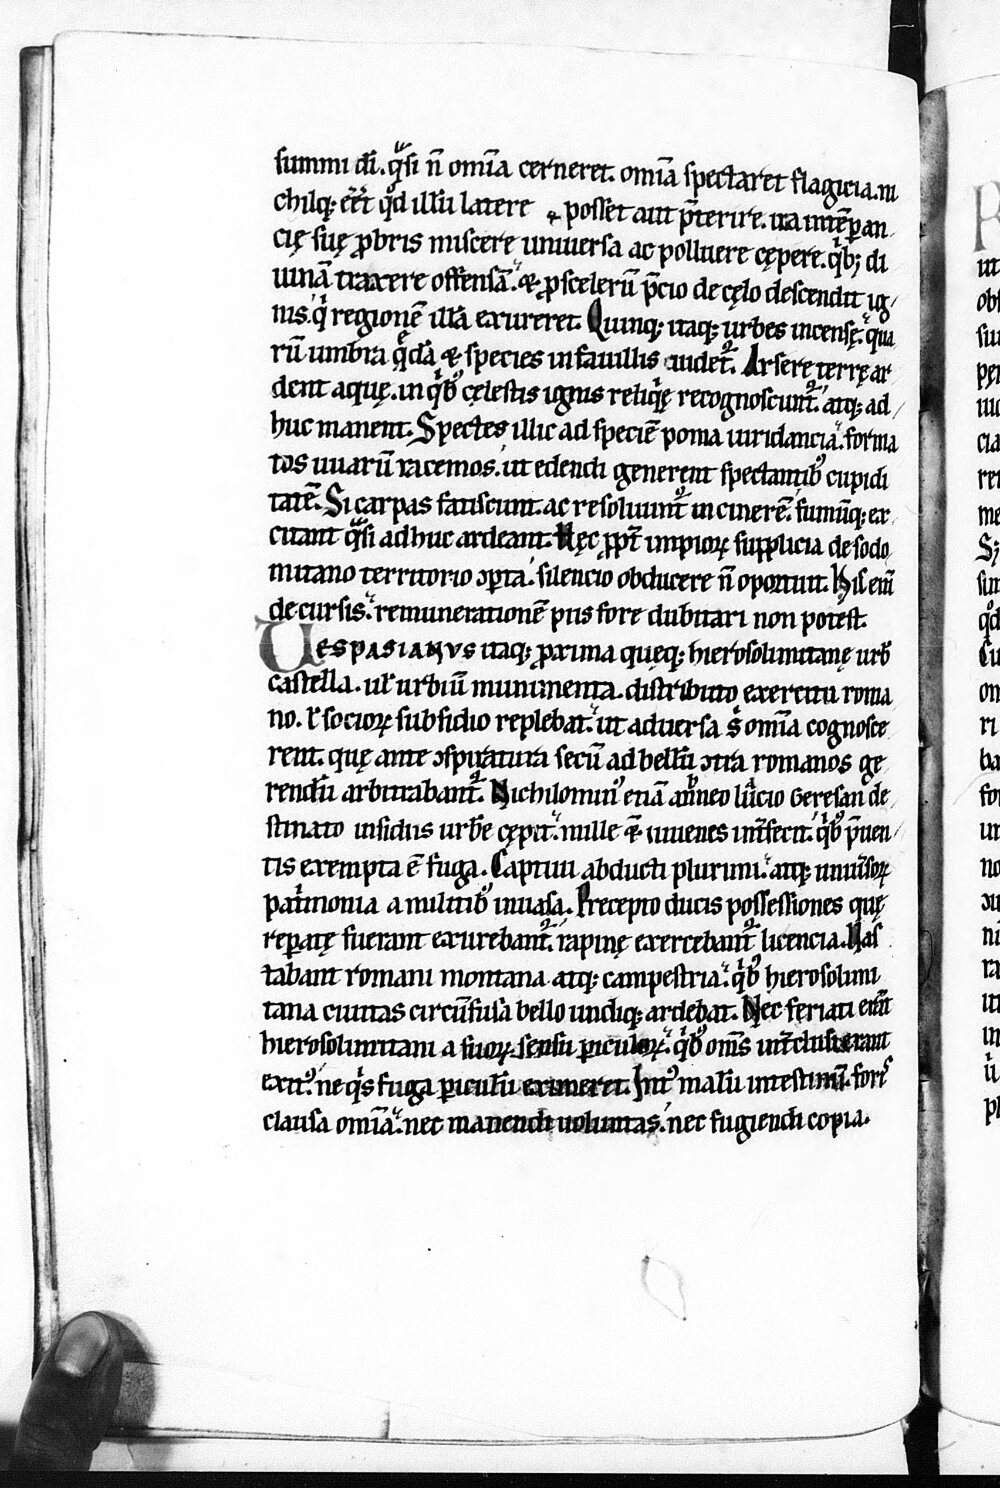 summi di̅. qᵃsi n̅ om̅ia cerneret. om̅ia spectaret flagicia. ni
chilq; ee̅t qd̕ illu̅ latere posset aut p̅terire. ita inte̅ꝑan
cię suę ꝓbris miscere uniuersa ac polluere cępere. qⁱb; di
uina̅ traxere offensa̅. & ꝓ sceleru̅ p̅cio de cęlo descendit ig/
nis. qⁱ regione̅ illa̅ exureret. Quinq; itaq; urbes incensę. qua
ru̅ umbra q̅da̅ & species in fauillis uidet᷑. Arsere terrę ar
dent aquę. in qⁱbꝰ cęlestis ignis reliqⁱę recognoscunt᷑, atq; ad/
huc manent. Spectes illic ad specie̅ poma uiridancia. forma
tos uuaru̅ racemos. ut edendi generent spectantibꝰ cupidi
tate̅. Si carpas fatiscunt. ac resoluunt᷑ in cinere̅. fumu̅q; ex
citant qᵃsi adhuc ardeant. Nec ꝓpt̅ impioꝝ supplicia de sodo
mitano territorio ɔꝑta. silencio obducere n̅ oportuit. His eni̅
decursis. remuneratione̅ piis fore dubitari non potest.
Uespasianus itaq; ꝓxima quęq; hierosolimitanę urbꝰ
castella. ul̕ urbiu̅ munimenta. distributo exercitu roma
no. ul̕ socioꝝ subsidio replebat. ut aduersa s̅ om̅ia cognosce
rent. quę ante ɔspiratura secu̅ ad bellu̅ ɔtra romanos ge
rendu̅ arbitrabant᷑. Nichilominꝰ etia̅ anneo lucio Geresan de
stinato insidiis urbe cępit. mille & iuuenes int̅fecit. qⁱbꝰ p̅uen
tis exempta e̅ fuga. Captiui abducti plurimi. atq;
patⁱmonia a militibꝰ inuasa. Precepto ducis possessiones quę
reꝑtę fuerant exurebant᷑. rapinę exercebant᷑ licencia. Uas
tabant romani montana atq; campestria. qⁱbꝰ hierosolimi
tana ciuitas circu̅fusa bello undiq; ardebat. Nec feriati era̅t
hierosolimitani a suoꝝ sensu ꝑiculoꝝ. qⁱbꝰ om̅s int̅clusерant
exitꝰ. ne qⁱs fuga ꝑiculu̅ eximeret. Intꝰ malu̅ intestinu̅. foris
clausa om̅ia. nec manendi uoluntas. nec fugiendi copia.